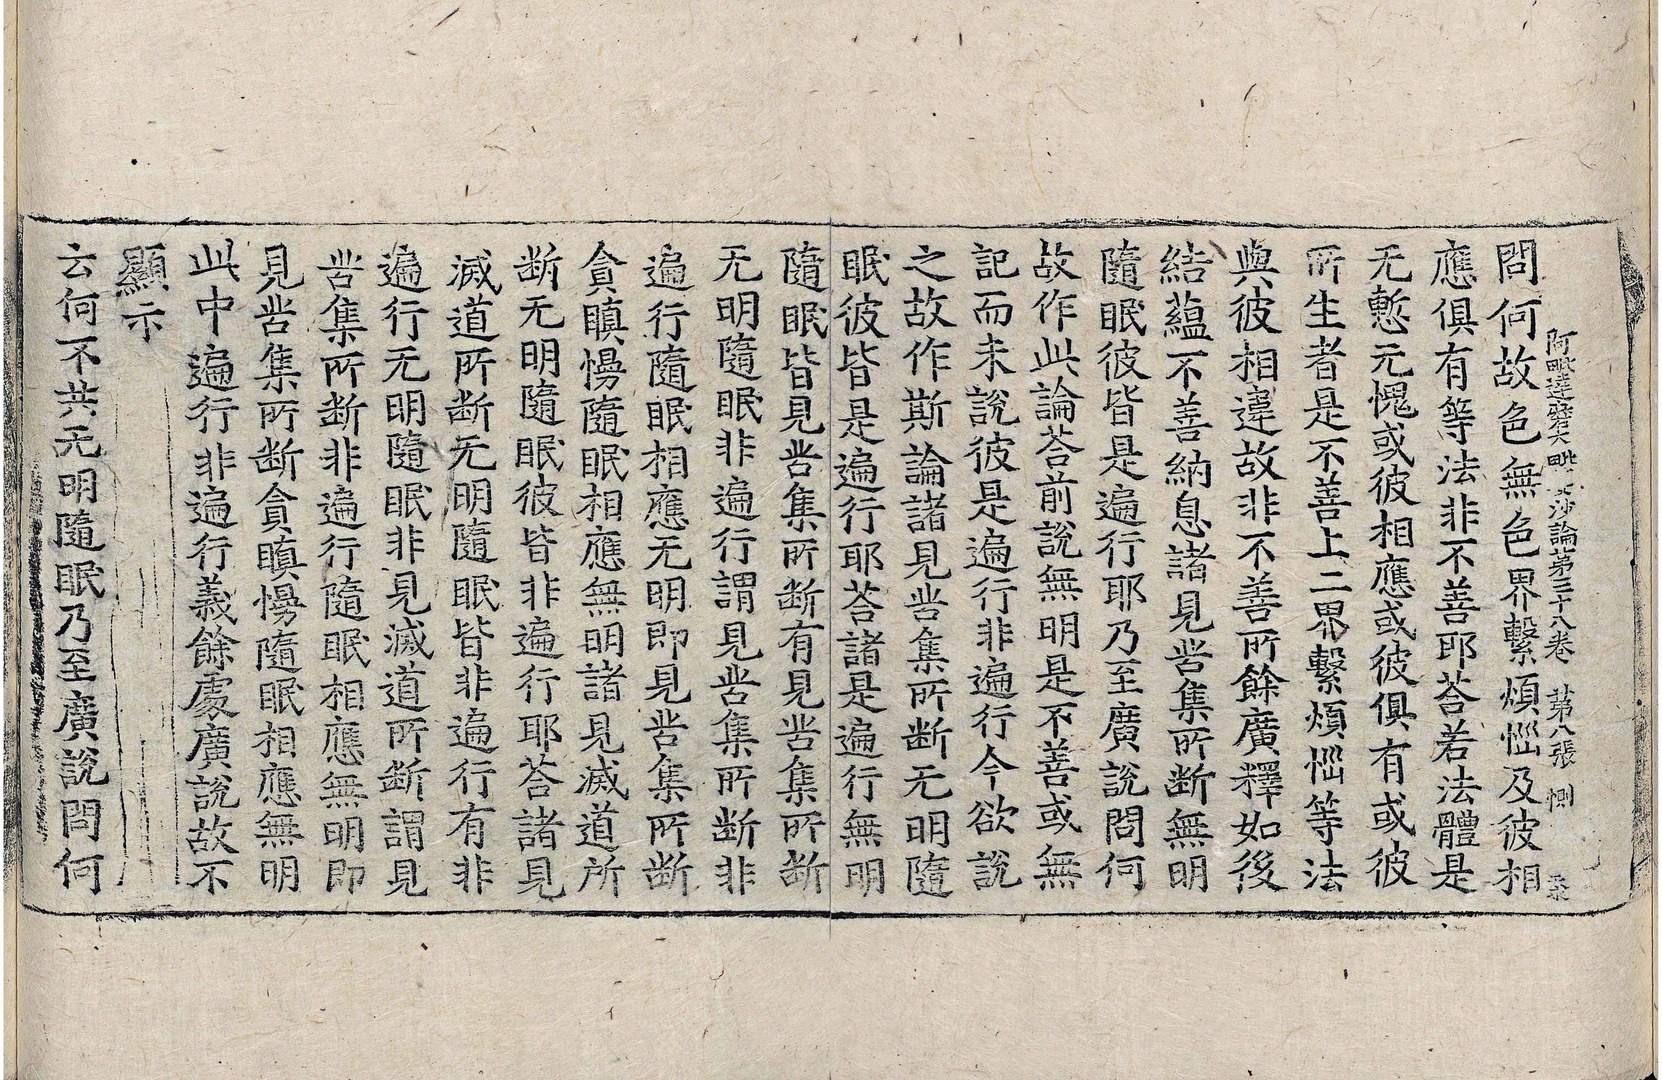 阿毗達磨大毗婆沙論第三十八卷 第八張 惻
問何故色無色界繫煩惱及彼相
應俱有等法非不善耶荅若法體是
无慙无愧或彼相應或彼俱有或彼
所生者是不善上二界繫煩惱等法
與彼相違故非不善所餘廣釋如後
結蘊不善納息諸見苦集所断無明
隨眠彼皆是遍行耶乃至廣說問何
故作此論荅前說無明是不善或無
記而未說彼是遍行非遍行今欲說
之故作斯論諸見苦集所断无明隨
眠彼皆是遍行耶荅諸是遍行無明
隨眠皆見苦集所断有見苦集所断
无明隨眠非遍行謂見苦集所断非
遍行隨眠相應无明即見苦集所断
貪瞋慢隨眠相應無明諸見滅道所
断无明隨眠彼皆非遍行耶荅諸見
滅道所断无明隨眠皆非遍行有非
遍行无明隨眠非見滅道所断謂見
苦集所断非遍行隨眠相應無明即
見苦集所断貪瞋慢隨眠相應無明
此中遍行非遍行義餘處廣說故不
顯示
云何不共无明隨眠乃至廣說問何